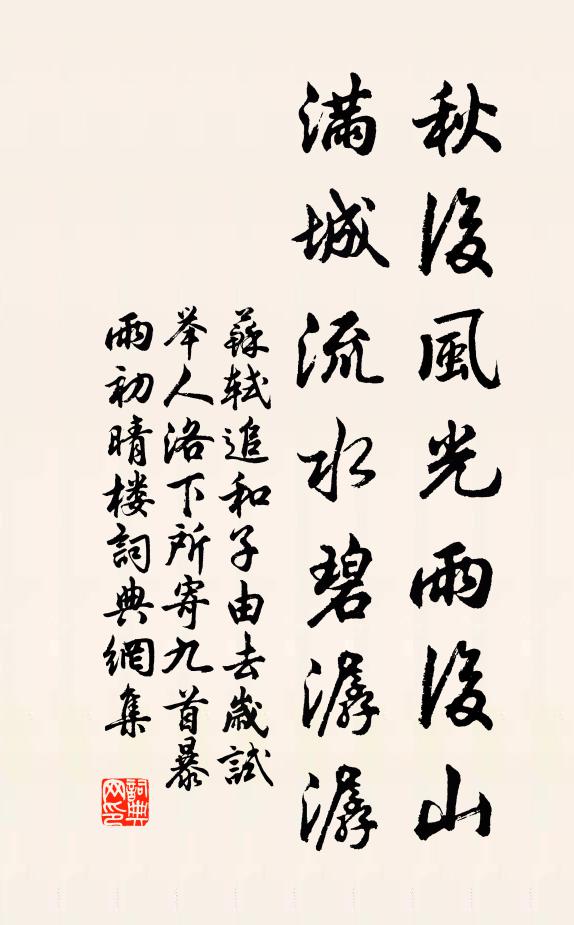 秋後風光雨後山
滿城流水碧潺潺
蘇軾追和子由去歲試
举人洛下所寄九首暴
雨初晴楼詞典網集
詞典
网印